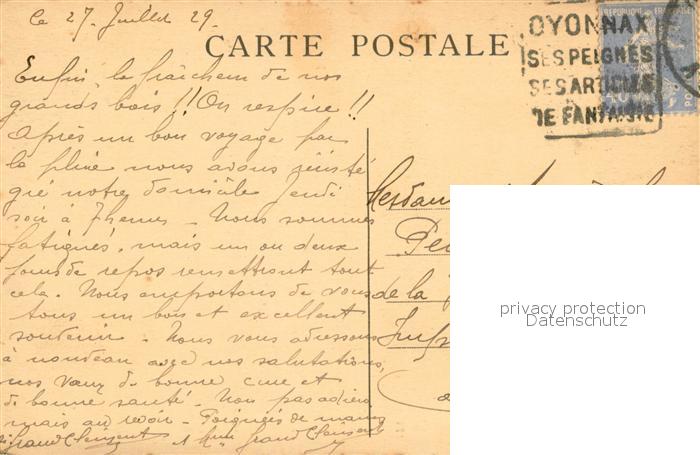 Le 27 Juillet 29.
CARTE POSTALE
OYONNAX
SES PEIGNES
SES ARTICLES
DE FANTAISIE
REPUBLIQUE FRANCAISE
Enfin, la fraîcheur de nos
grands bois !! On respire !!
Après un bon voyage par
la pluie nous avons réinté
gré notre domicile jeudi
soir à 7 heures. Nous sommes
fatigués, mais un ou deux
jours de repos remettront tout
cela. Nous emportons de vous
tous un bon et excellent
souvenir. Nous vous adressons
à nouveau avec nos salutations,
nos vœux de bonne cure et
de bonne santé. Non pas adieu
mais au revoir. Poignées de mains
Grand Clément
Mesdam
Pe
de la
privacy protection
Datenschutz